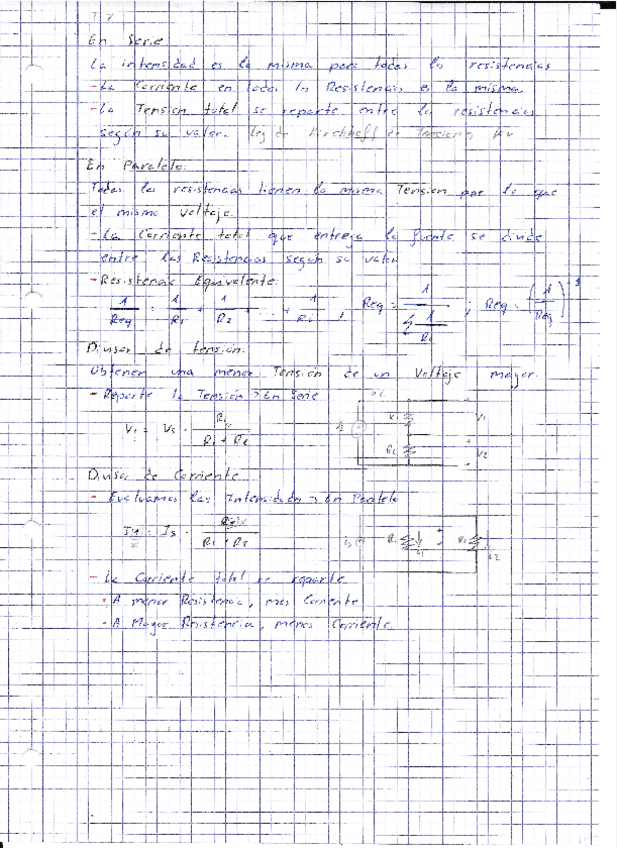 En Serie
La intensidad es la misma para todas las resistencias
- La Corriente en todas las Resistencias es la misma.
- La Tension total se reparte entre la resistencias
según su valor. Ley de Kirchhoff de Tensiones Kv
En Paralelo:
Todas las resistencias tienen la misma Tensión por lo que
el mismo voltaje.
- La Corriente total que entrega la fuente se divide
entre las Resistencias según su valor
- Resistencia Equivalente:
1/Req = 1/R1 + 1/R2 + 1/Ri ; Req = 1/(Σ 1/Ri) ; Req = (1/Req)^-1
Divisor de tensión:
Obtener una menor Tensión de un Voltaje mayor.
- Reparte la Tensión > En Serie
V1 = Vs · R1/(R1 + R2)
R1 V1
R2 V2
Divisor de Corriente
- Evaluamos las Intensidades > En Paralelo
is R1 i1 i2
- La Corriente total se reparte
- A menor Resistencia, mas Corriente
- A Mayor Resistencia, menos Corriente.